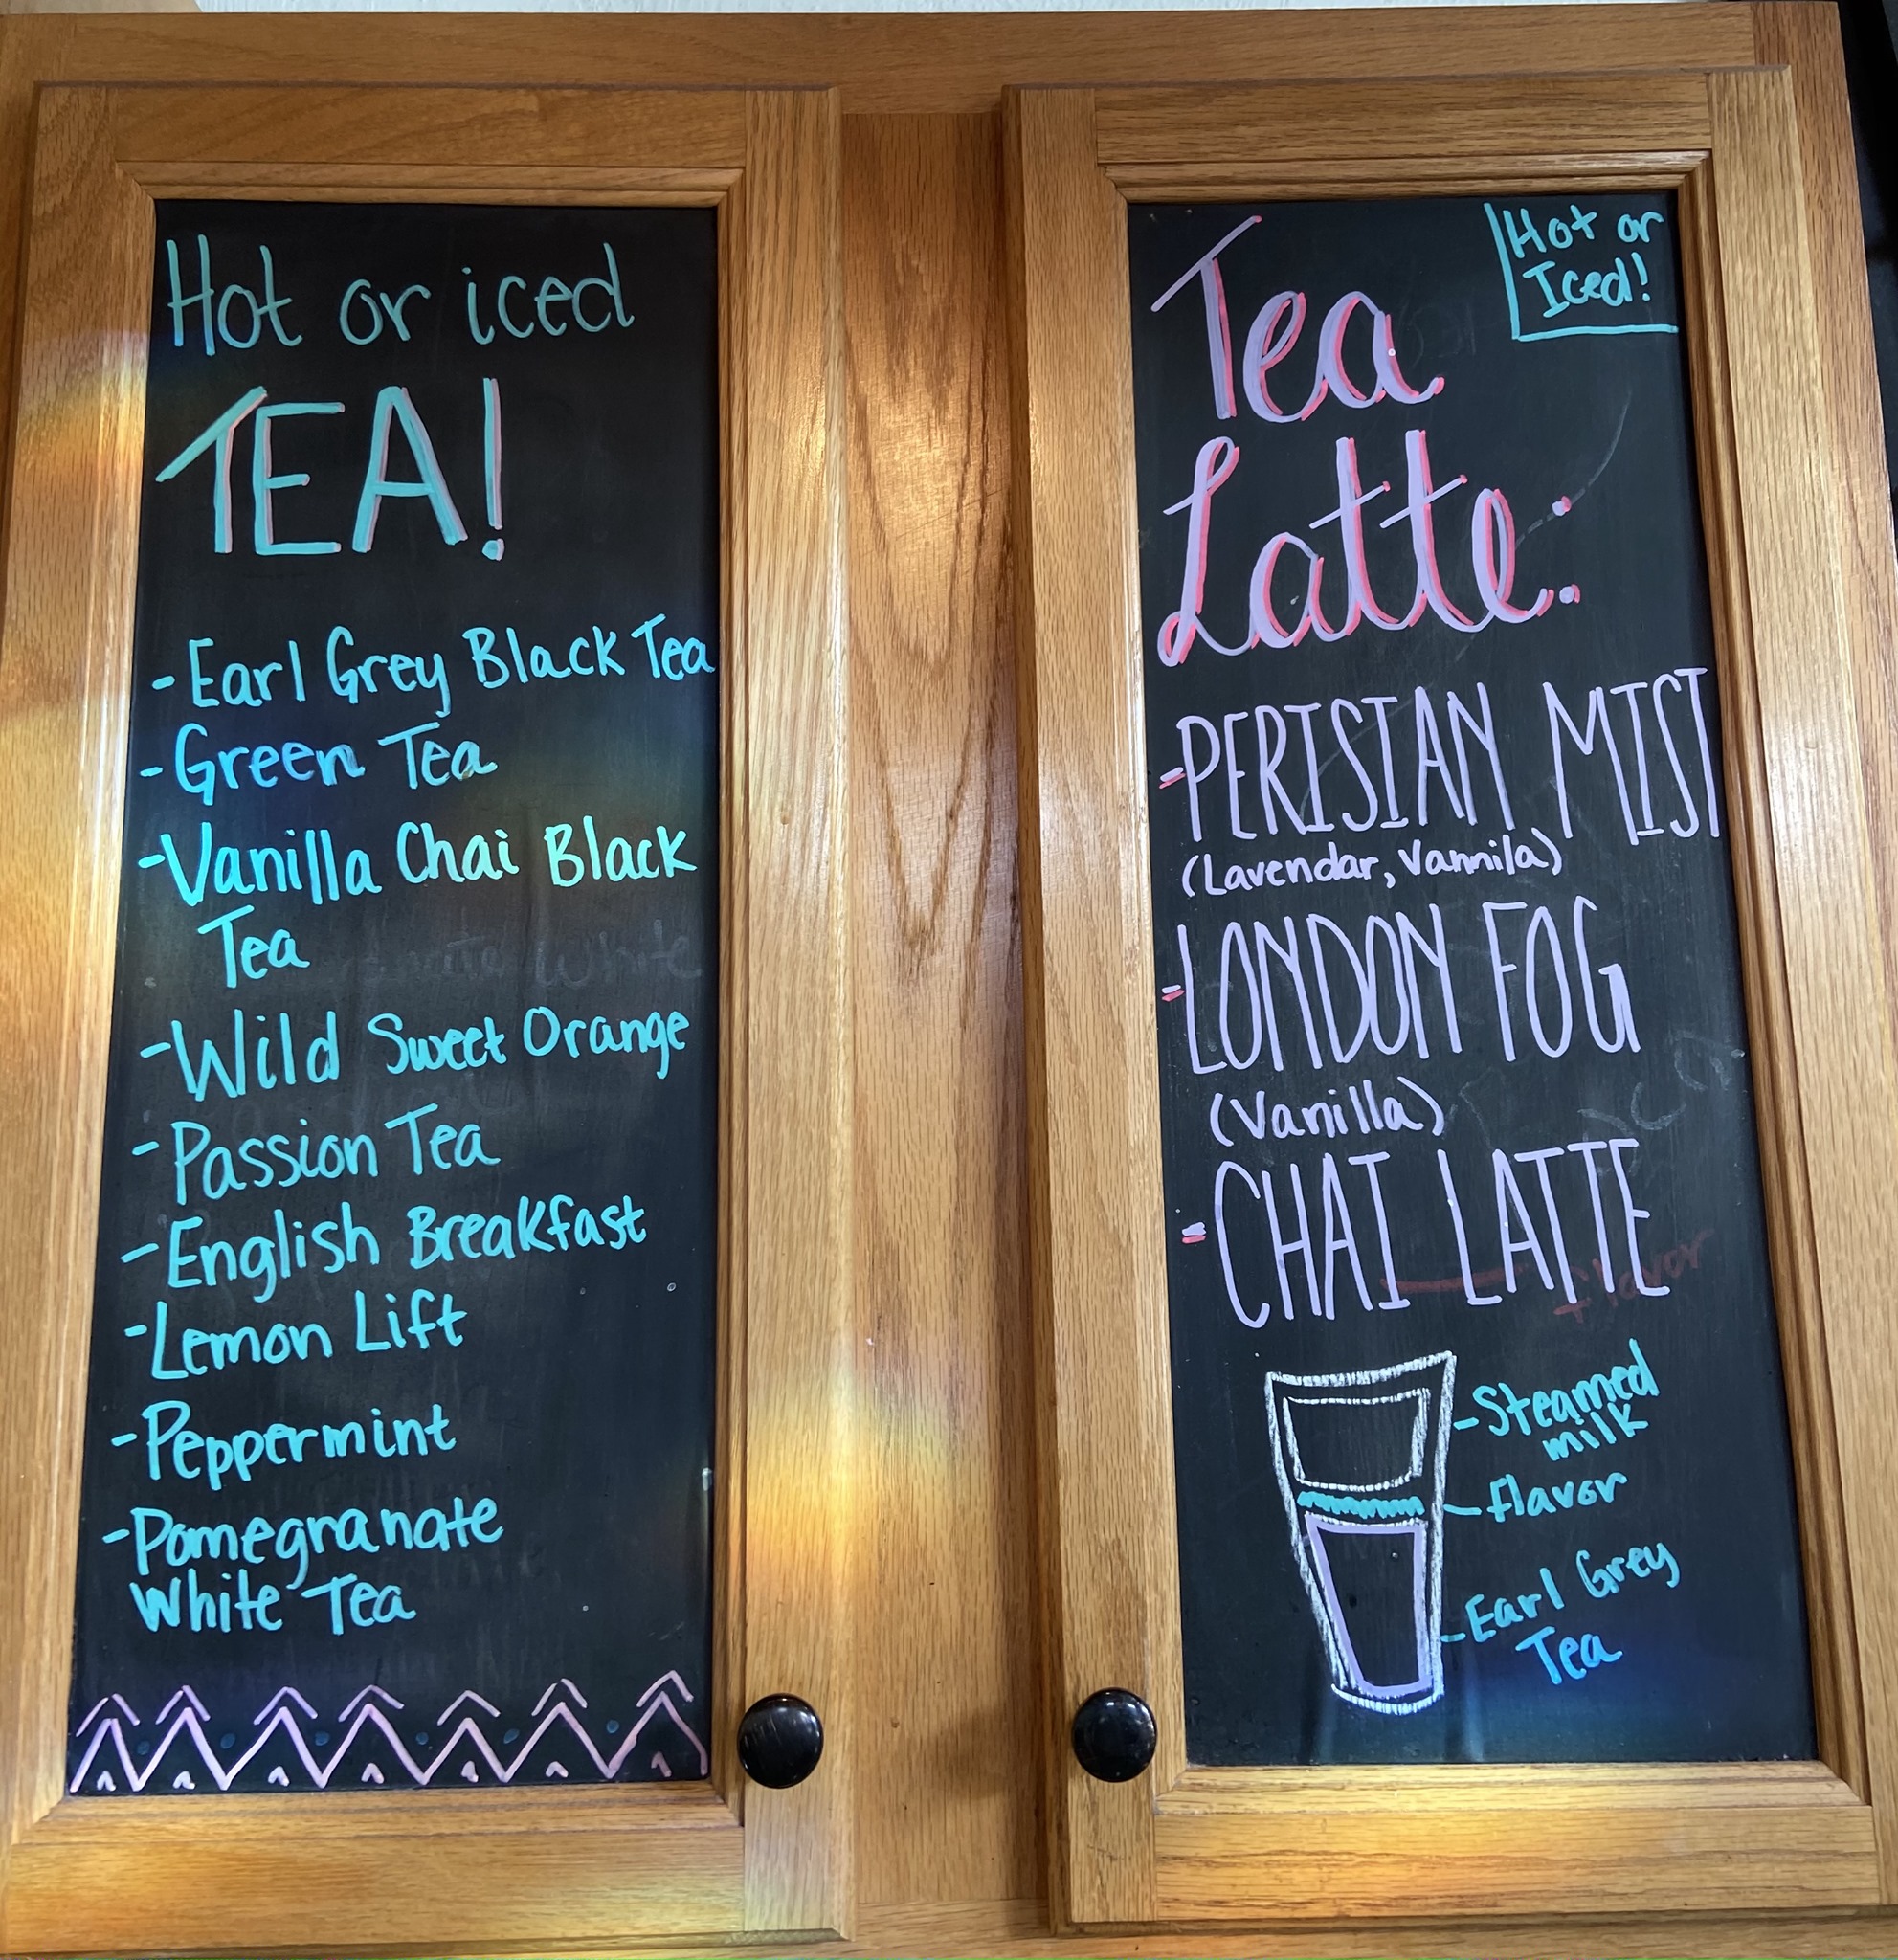 Hot or iced
TEA!
-Earl Grey Black Tea
-Green Tea
-Vanilla Chai Black
Tea
-Wild Sweet Orange
-Passion Tea
-English Breakfast
-Lemon Lift
-Peppermint
-Pomegranate
White Tea
Hot or
Iced!
Tea
Latte:
-PERISIAN MIST
(Lavendar, Vannila)
-LONDON FOG
(Vanilla)
-CHAI LATTE
flavor
-Steamed
milk
-flavor
-Earl Grey
Tea